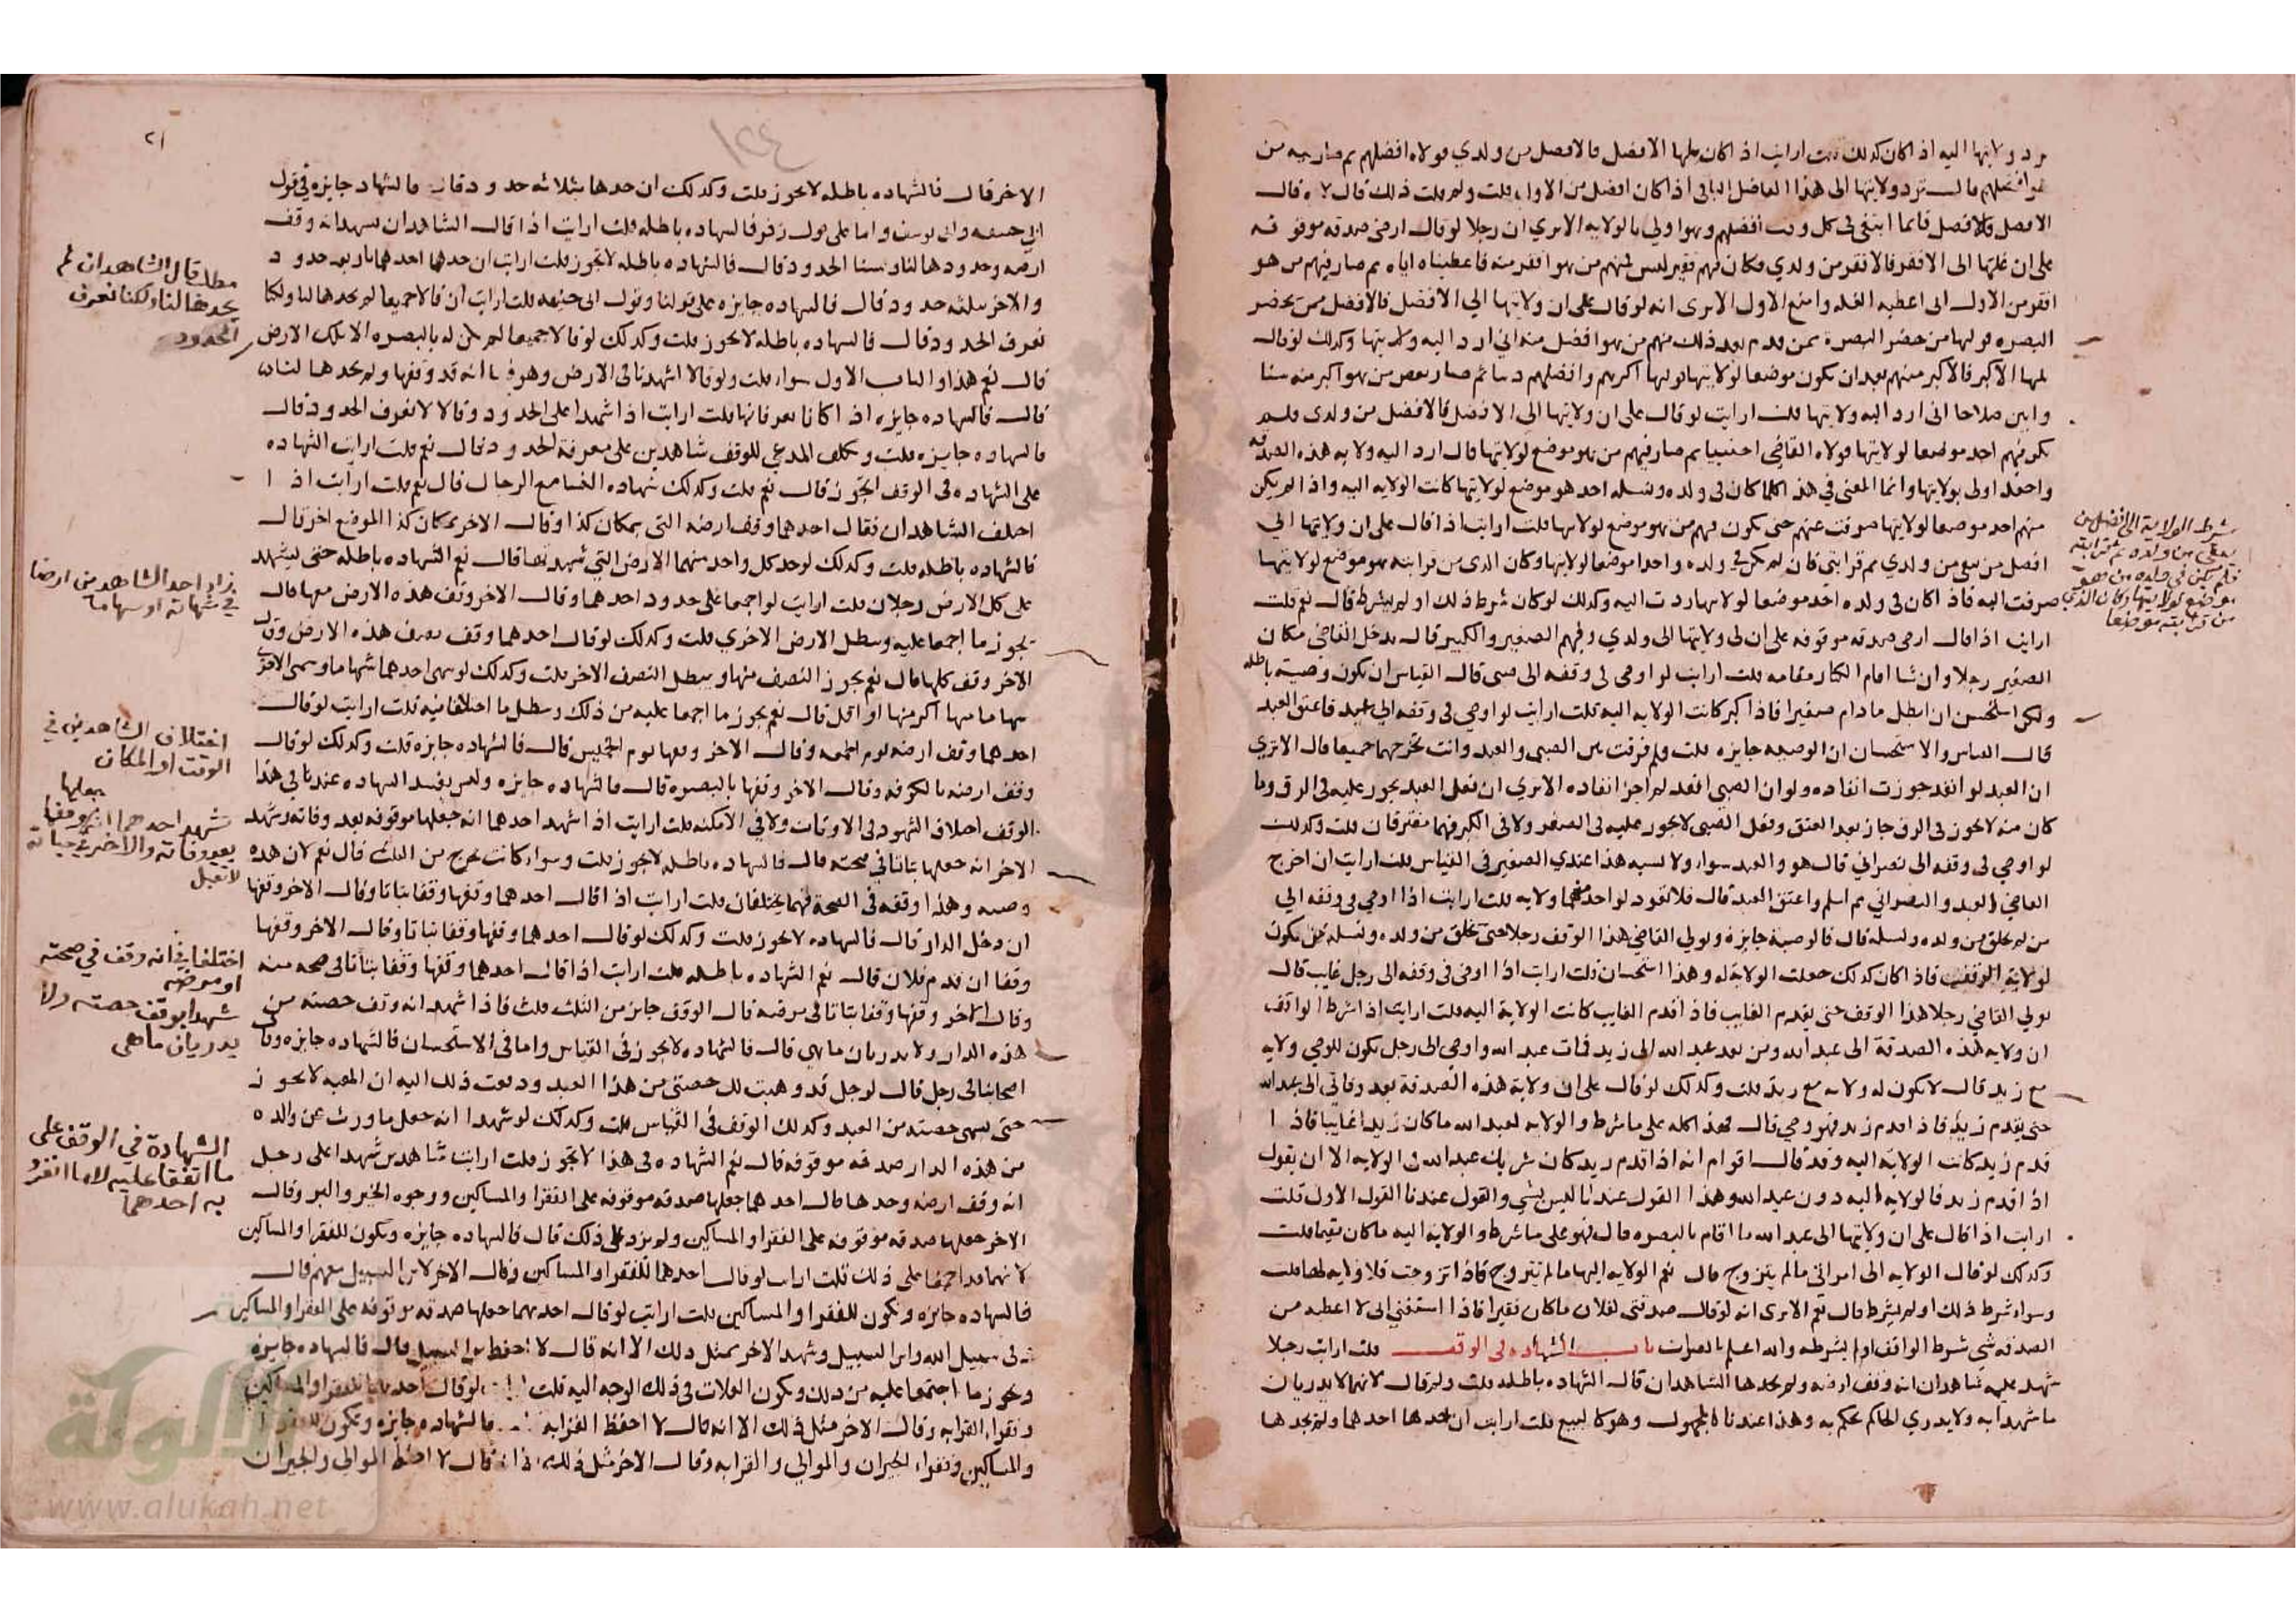 يرد ولايتها اليه اذا كان كذلك قلت ارايت اذا كان عليها الافضل فالافضل من ولدي فولاه افضلهم ثم صار فيه من
هو افضلهم قال ترد ولايتها الى هذا الفاضل الباقي اذا كان افضل من الاول قلت ولم قلت ذلك قال لانه قال
الافضل فالافضل فانما ابتغى في كل وقت افضلهم وهو اولى بالولايه الا تري ان رجلا لو قال ارضي صدقه موقوفه
على ان غلتها الى الافقر فالافقر من ولدي فكان فيهم فقير ليس فيهم من هو افقر منه فاعطيناه اياه ثم صار فيهم من هو
افقر من الاول اني اعطيه الغله وامنع الاول الا ترى انه لو قال على ان ولايتها الي الافضل فالافضل ممن يحضر
البصره فوليها من حضر البصرة ممن قدم بعد ذلك منهم من هو افضل منه اني ارد اليه ولايتها وكذلك لو قال
يليها الاكبر فالاكبر منهم بعد ان يكون موضعا لولايتها فوليها اكبرهم وافضلهم دينا ثم صار بعض من هو اكبر منه سنا
وابين صلاحا اني ارد اليه ولايتها قلت ارايت لو قال على ان ولايتها الى الافضل فالافضل من ولدي فلم
يكن فيهم احد موضعا لولايتها فولاه القاضي اجنبيا ثم صار فيهم من هو موضع لولايتها قال ارد اليه ولايه هذه الصدقه
واجعله اولى بولايتها وانما المعنى في هذا كلما كان في ولده ونسله احد هو موضع لولايتها كانت الولايه اليه واذا لم يكن
منهم احد موضعا لولايتها صرفت عنهم حتى يكون فيهم من هو موضع لولايتها قلت ارايت اذا قال على ان ولايتها الي
افضل من بقي من ولدي ثم قرابتي فان لم يكن في ولده واحدا موضعا لولايتها وكان الذي من قرابته هو موضع لولايتها
صرفت اليه فاذا كان في ولده احد موضعا لولايتها ردت اليه وكذلك لو كان شرط ذلك او لم يشرط قال نعم قلت
ارايت اذا قال ارضي صدقه موقوفه على ان لي ولايتها الى ولدي وفيهم الصغير والكبير قال يدخل القاضي مكان
الصغير رجلا وان شا اقام الكبار مقامه قلت ارايت لو اوصى في وقفه الى صبي قال القياس ان تكون وصيته باطله
ولكن استحسن ان ابطل ما دام صغيرا فاذا كبر كانت الولايه اليه قلت ارايت لو اوصى في وقفه الى عبد فاعتق العبد
قال القياس والاستحسان ان الوصيه جايزه قلت ولم فرقت بين الصبي والعبد وانت تخرجهما جميعا قال الا تري
ان العبد لو انفذ جوزت انفاده ولو ان الصبي انفذ لم اجز انفاده الا تري ان فعل العبد يجوز عليه في الرق وما
كان منه لا يجوز في الرق جاز بعد العتق وفعل الصبي لا يجوز عليه في الصغر ولا في الكبر فهما مفترقان قلت وكذلك
لو اوصي في وقفه الى نصراني قال هو والعبد سواء ولا يشبه هذا عندي الصغير في القياس قلت ارايت ان اخرج
القاضي العبد والنصراني ثم اسلم واعتق العبد قال فلا تعود لواحد منهما ولايه قلت ارايت اذا اوصي في وقفه الي
من لم يخلق من ولده ونسله قال فالوصية جايزة ويولي القاضي هذا الوقف رجلا حتى يخلق من ولده ونسله من يكون
لولاية الوقف فاذا كان كذلك جعلت الولاية له وهذا استحسان قلت ارايت اذا اوصى في وقفه الى رجل غايب قال
يولي القاضي رجلا هذا الوقف حتى يقدم الغايب فاذا قدم الغايب كانت الولاية اليه قلت ارايت اذا شرط الواقف
ان ولايه هذه الصدقة الى عبد الله ومن بعد عبد الله الى زيد فمات عبد الله واوصى الى رجل يكون للوصي ولايه
مع زيد قال لا يكون له ولايه مع زيد قلت وكذلك لو قال على ان ولاية هذه الصدقة بعد وفاتي الى عبد الله
حتى يقدم زيد فاذا قدم زيد فهو وصي قال هذا كله على ما شرط والولايه لعبد الله ما كان زيد غايبا فاذا
قدم زيد كانت الولاية اليه وقد قال اقوام انه اذا قدم زيد كان شريك عبد الله في الولايه الا ان يقول
اذا قدم زيد فالولايه اليه دون عبد الله وهذا القول عندنا ليس بشي والقول عندنا القول الاول قلت
ارايت اذا قال على ان ولايتها الى عبد الله ما اقام بالبصره قال فهو على ما شرط والولاية اليه ما كان مقيما قلت
وكذلك لو قال الولايه الى امراتي ما لم تتزوج قال نعم الولايه اليها ما لم تتزوج فاذا تزوجت فلا ولايه لها قلت
وسواء شرط ذلك او لم يشرط قال نعم الا ترى انه لو قال صدقتي لفلان ما كان فقيرا فاذا استغنى اني لا اعطيه من
الصدقه شي شرط الواقف او لم يشرطه والله اعلم بالصواب باب الشهاده في الوقف قلت ارايت رجلا
شهد عليه شاهدان انه وقف ارضه ولم يحدها الشاهدان قال الشهاده باطله قلت ولم قال لانهما لا يدريان
ما شهدا به ولا يدري الحاكم ما يحكم به وهذا عندنا المجهول وهو كالبيع قلت ارايت ان حدها احدهما ولم يحدها
شرط الولاية الى افضل من
بقي من ولده ثم قرابته
فلم يكن في ولده من هو
موضع لولايتها وكان الذي
من قرابته موضعا
٢١
١٢٤
الاخر قال فالشهاده باطله لا يجوز قلت وكذلك ان حدها بثلاثه حدود قال فالشهاده جايزه في قول
ابي حنيفه وابي يوسف واما على قول زفر فالشهاده باطله قلت ارايت اذا قال الشاهدان نشهد انه وقف
ارضه وحدودها لنا ونسينا الحدود قال فالشهاده باطله لا تجوز قلت ارايت ان حدها احدهما باربعه حدود
والاخر بثلثه حدود قال فالشهاده جايزه على قولنا وقول ابي حنيفه قلت ارايت ان قالا جميعا لم يحدها لنا ولكنا
نعرف الحدود قال فالشهاده باطله لا يجوز قلت وكذلك لو قالا جميعا لم يكن له بالبصره الا تلك الارض
قال نعم هذا والباب الاول سواء قلت ولو قالا اشهدنا في الارض وهو فيها انه قد وقفها ولم يحدها لنا
قال فالشهاده جايزه اذا كانا يعرفانها قلت ارايت اذا شهدا على الحدود وقالا لا نعرف الحدود قال
فالشهاده جايزه قلت ويكلف المدعي للوقف شاهدين على معرفة الحدود قال نعم قلت ارايت الشهاده
على الشهاده في الوقف اتجوز قال نعم قلت وكذلك شهاده النسا مع الرجال قال نعم قلت ارايت اذا
اختلف الشاهدان فقال احدهما وقف ارضه التي بمكان كذا وقال الاخر بمكان كذا الموضع اخر قال
فالشهاده باطله قلت وكذلك لو حد كل واحد منهما الارض التي شهد بها قال نعم الشهاده باطله حتى يشهد
على كل الارض رجلان قلت ارايت لو اجمعا على حدود احدهما وقال الاخر وقف هذه الارض معها قال
يجوز ما اجمعا عليه وتبطل الارض الاخري قلت وكذلك لو قال احدهما وقف نصف هذه الارض وقال
الاخر وقف كلها قال نعم يجوز النصف منها ويبطل النصف الاخر قلت وكذلك لو سمى احدهما سهاما وسمى الاخر
سهاما منها اكثر منها او اقل قال نعم يجوز ما اجمعا عليه من ذلك وتبطل ما اختلفا فيه قلت ارايت لو قال
احدهما وقف ارضه يوم الجمعه وقال الاخر وقفها يوم الخميس قال فالشهاده جايزه قلت وكذلك لو قال
وقف ارضه بالكوفه وقال الاخر وقفها بالبصره قال فالشهاده جايزه وليس يفسد الشهاده عندنا في هذا
الوقف اختلاف الشهود في الاوقات ولا في الامكنه قلت ارايت اذا شهد احدهما انه جعلها موقوفه بعد وفاته وشهد
الاخر انه جعلها بتاتا في صحته قال فالشهاده باطله لا يجوز قلت وسواء كانت تخرج من الثلث قال نعم لان هذه
وصيه وهذا وقفه في الصحة فهما يختلفان قلت ارايت اذا قال احدهما وقفها وقفا بتاتا وقال الاخر وقفها
ان دخل الدار قال فالشهاده لا يجوز قلت وكذلك لو قال احدهما وقفها وقفا بتاتا وقال الاخر وقفها
وقفا ان قدم فلان قال نعم الشهاده باطله قلت ارايت اذا قال احدهما وقفها وقفا بتاتا في صحه منه
وقال الاخر وقفها وقفا بتاتا في مرضه قال الوقف جايز من الثلث قلت فاذا شهدا انه وقف حصته من
هذه الدار ولا يدريان ما هي قال فالشهاده لا يجوز في القياس واما في الاستحسان فالشهاده جايزه وقال
اصحابنا في رجل قال لرجل قد وهبت لك حصتي من هذا العبد ودفعت ذلك اليه ان الهبه لا يجوز
حتى يسمى حصته من العبد وكذلك الوقف في القياس قلت وكذلك لو شهدا انه جعل ما ورث عن والده
من هذه الدار صدقه موقوفه قال نعم الشهاده في هذا لا تجوز قلت ارايت شاهدين شهدا على رجل
انه وقف ارضه وحدها قال احدهما جعلها صدقه موقوفه على الفقرا والمساكين ووجوه الخير والبر وقال
الاخر جعلها صدقه موقوفه على الفقرا والمساكين ولم يزد على ذلك قال فالشهاده جايزه وتكون للفقرا والمساكين
لانهما قد اجمعا على ذلك قلت ارايت لو قال احدهما للفقرا والمساكين وقال الاخر لابن السبيل سهم قال
فالشهاده جايزه وتكون للفقرا والمساكين قلت ارايت لو قال احدهما جعلها صدقه موقوفه على الفقرا والمساكين
في سبيل الله وابن السبيل وشهد الاخر بمثل ذلك الا انه قال لا احفظ ابن السبيل قال فالشهاده جايزه
ويجوز ما اجتمعا عليه من ذلك وتكون الغلات في ذلك الوجه اليه قلت لو قال احدهما للفقرا والمساكين
وفقراء القرابه وقال الاخر مثل ذلك الا انه قال لا احفظ القرابه فالشهاده جايزه وتكون للفقرا
والمساكين وفقراء الجيران والموالي والقرابه وقال الاخر مثل ذلك قال لا احفظ الموالي والجيران
مطلب قال الشاهدان لم
يحدها لنا ولكنا نعرف
الحدود
زاد احد الشاهدين ارضا
في شهادته او سهاما
اختلاف الشاهدين في
الوقت او المكان
شهد احدهما انه جعلها وقفا
بعد وفاته والاخر في حياته
لا تقبل
اختلفا في انه وقف في صحته
او مرضه
شهدا بوقف حصته ولا
يدريان ما هي
الشهادة في الوقف على
ما اتفقا عليه لا ما انفرد
به احدهما
الألوكة
www.alukah.net